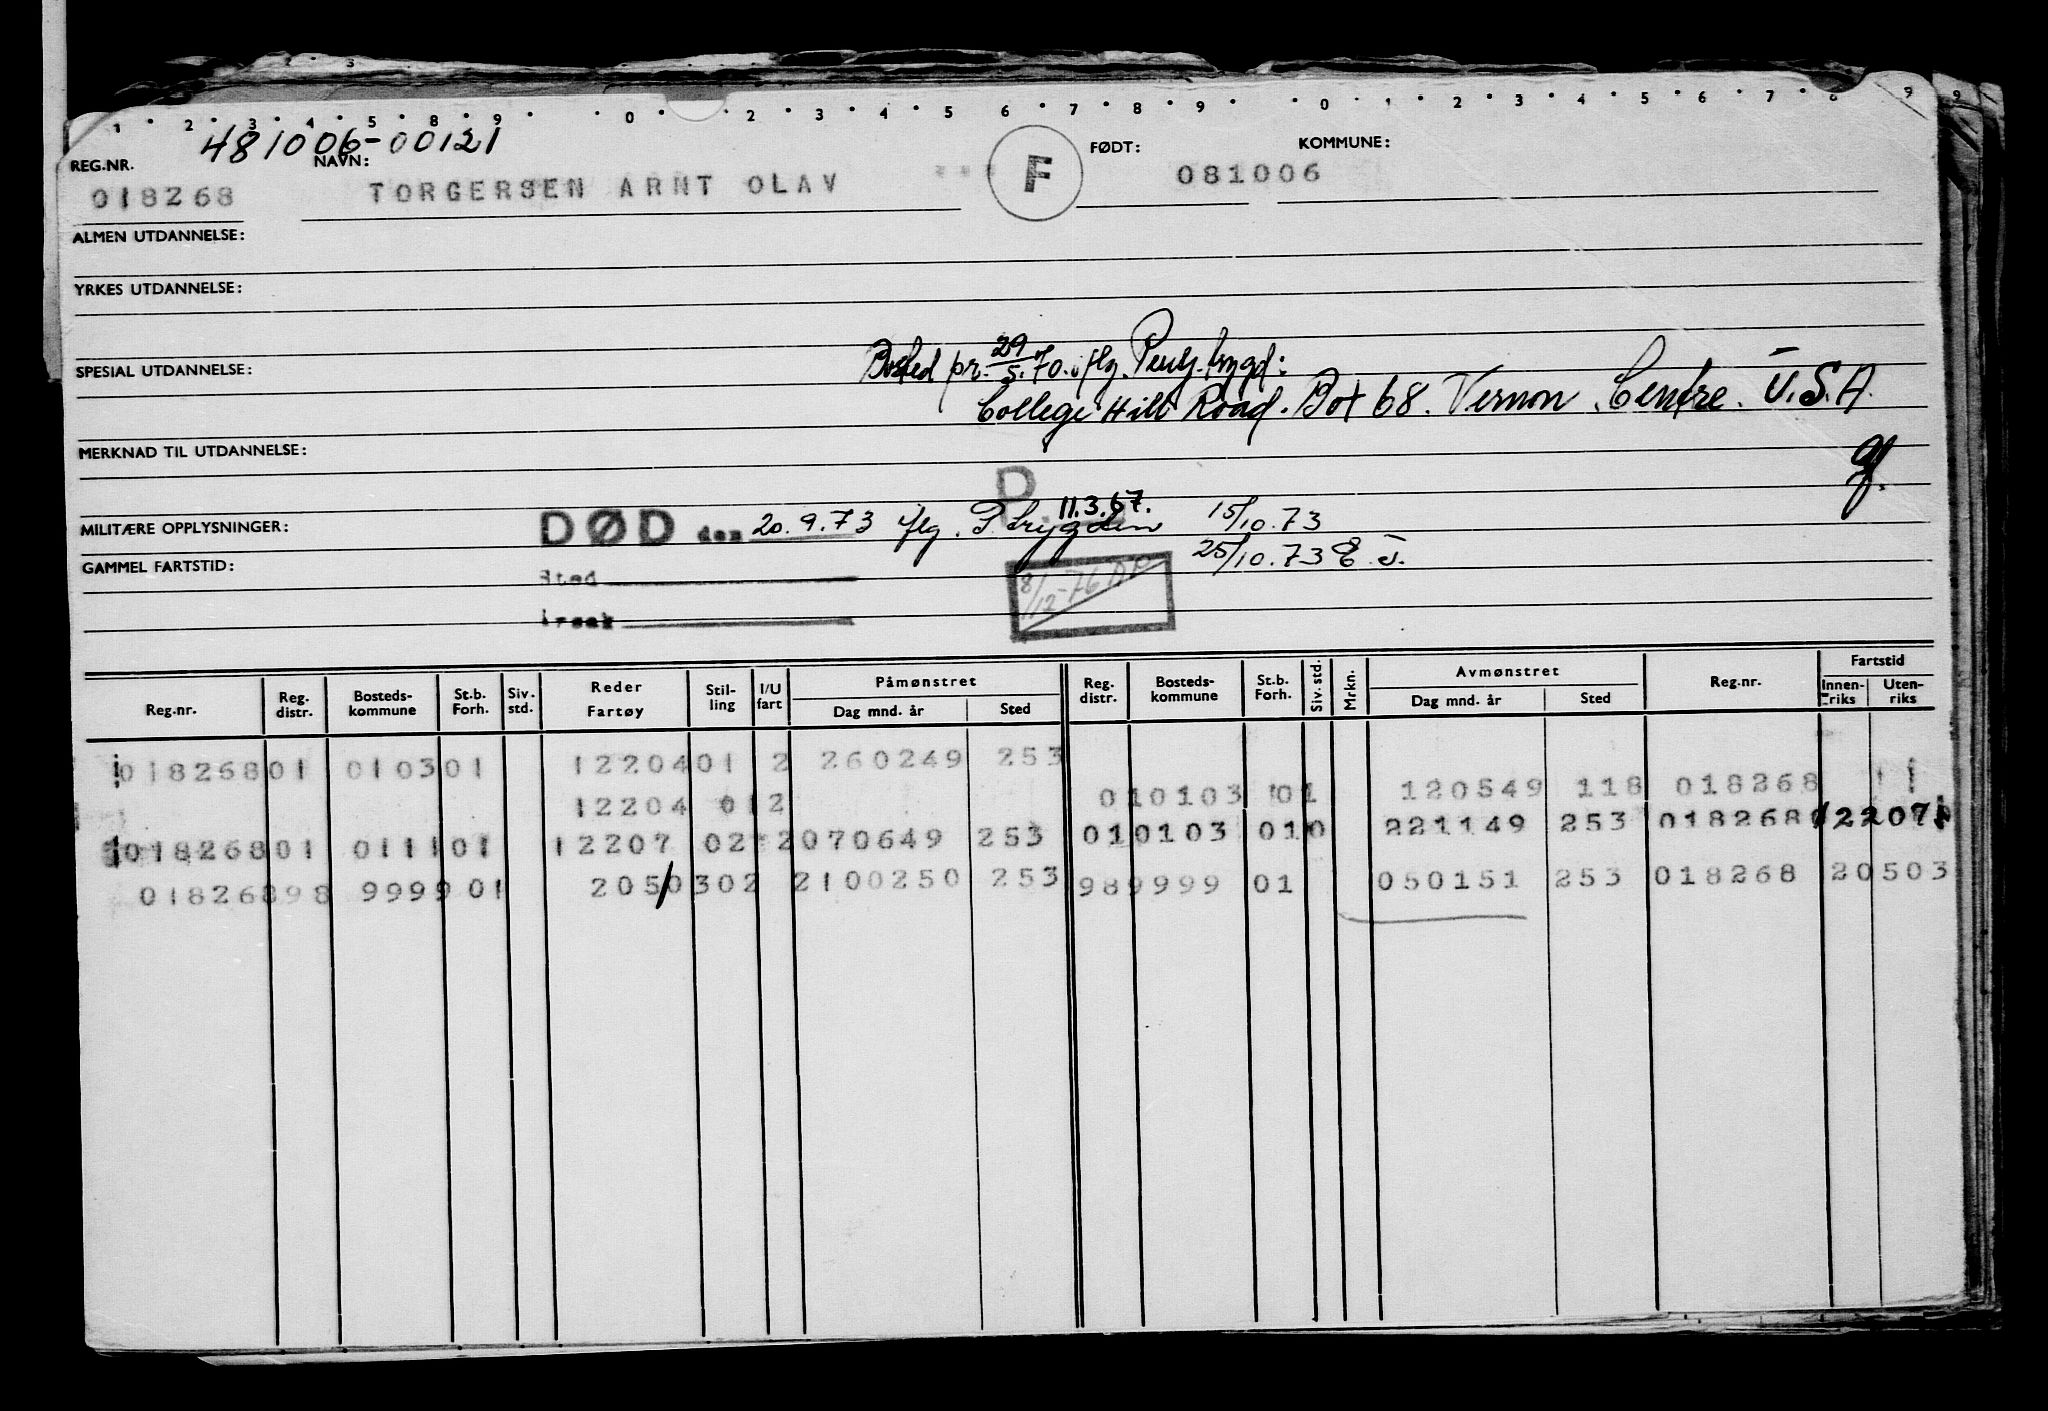 1 · 2 · 3 · 4 · 5 · 8 · 9 · · 0 · · 2 · 3 · 4 · 5 · 6 · 7 · 8 · 9 · · 0 · 1 · 2 · 3 · 4 · 5 · 6 · 7 · 8 9 9
481006-00121
REG.NR. NAVN: FØDT: KOMMUNE:
018268 TORGERSEN ARNT OLAV *** F 081006
ALMEN UTDANNELSE:
YRKES UTDANNELSE:
Bosted pr. 29/5.70. iflg. trygd:
SPESIAL UTDANNELSE:
College Hill Road. Box 68. Vernon Centre. U.S.A.
MERKNAD TIL UTDANNELSE:
P. 11.3.67.
MILITÆRE OPPLYSNINGER: DØD den 20.9.73 iflg. P.trygden 15/10.73
25/10.73 E.T.
GAMMEL FARTSTID: Sted
8/12-76
Årsak
Reg.nr. Reg. distr. Bosteds-kommune St.b. Forh. Siv. std. Reder Fartøy Stil-ling I/U fart Påmønstret Dag mnd. år Sted Reg. distr. Bosteds-kommune St.b. Forh. Siv. std. Mrkn. Avmønstret Dag mnd. år Sted Reg.nr. Fartstid Innen-riks Uten-riks
01826801 010301 1220401 2 260249 253
12204 012 010103 01 120549 118 018268
01826801 011101 12207 02 2070649 253 010103 010 221149 253 018268 12207
01826898 999901 2050302 2100250 253 989999 01 050151 253 018268 20503